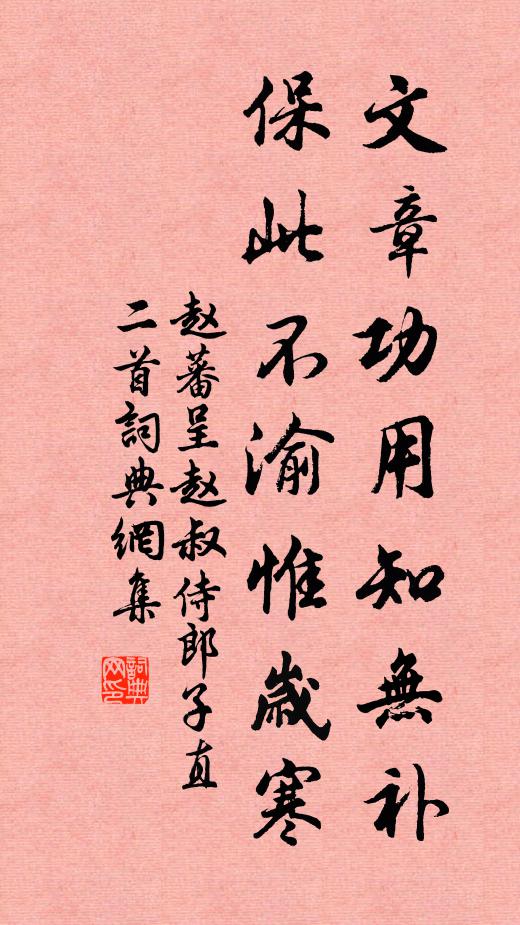 文章功用知無补
保此不渝惟歲寒
赵蕃呈赵叔侍郎子直
二首詞典網集
詞典網印